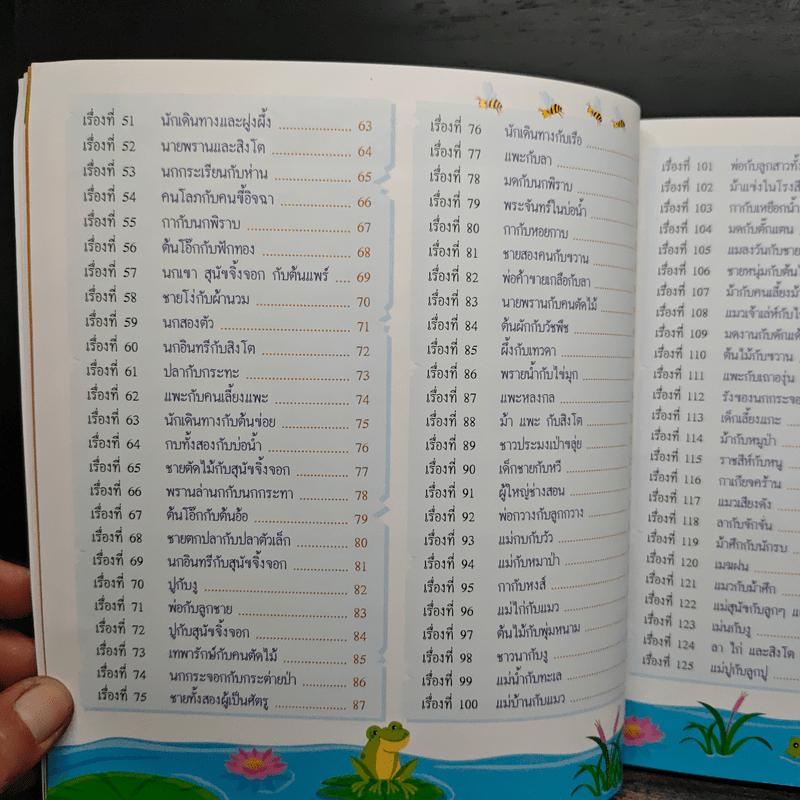 เรื่องที่ 51 นักเดินทางและฝูงผึ้ง ........................ 63
เรื่องที่ 52 นายพรานและสิงโต ........................ 64
เรื่องที่ 53 นกกระเรียนกับห่าน ........................ 65
เรื่องที่ 54 คนโลภกับคนขี้อิจฉา ........................ 66
เรื่องที่ 55 กากับนกพิราบ ........................ 67
เรื่องที่ 56 ต้นโอ๊กกับฟักทอง ........................ 68
เรื่องที่ 57 นกเขา สุนัขจิ้งจอก กับต้นแพร์ .... 69
เรื่องที่ 58 ชายโง่กับผ้านวม ........................ 70
เรื่องที่ 59 นกสองตัว ........................ 71
เรื่องที่ 60 นกอินทรีกับสิงโต ........................ 72
เรื่องที่ 61 ปลากับกระทะ ........................ 73
เรื่องที่ 62 แพะกับคนเลี้ยงแพะ ........................ 74
เรื่องที่ 63 นักเดินทางกับต้นข่อย ........................ 75
เรื่องที่ 64 กบทั้งสองกับบ่อน้ำ ........................ 76
เรื่องที่ 65 ชายตัดไม้กับสุนัขจิ้งจอก ........................ 77
เรื่องที่ 66 พรานล่านกกับนกกระทา ........................ 78
เรื่องที่ 67 ต้นโอ๊กกับต้นอ้อ ........................ 79
เรื่องที่ 68 ชายตกปลากับปลาตัวเล็ก ........................ 80
เรื่องที่ 69 นกอินทรีกับสุนัขจิ้งจอก ........................ 81
เรื่องที่ 70 ปูกับงู ........................ 82
เรื่องที่ 71 พ่อกับลูกชาย ........................ 83
เรื่องที่ 72 ปูกับสุนัขจิ้งจอก ........................ 84
เรื่องที่ 73 เทพารักษ์กับคนตัดไม้ ........................ 85
เรื่องที่ 74 นกกระจอกกับกระต่ายป่า ........................ 86
เรื่องที่ 75 ชายทั้งสองผู้เป็นศัตรู ........................ 87
เรื่องที่ 76 นักเดินทางกับเรือ
เรื่องที่ 77 แพะกับลา
เรื่องที่ 78 มดกับนกพิราบ
เรื่องที่ 79 พระจันทร์ในบ่อน้ำ
เรื่องที่ 80 กากับหอยกาบ
เรื่องที่ 81 ชายสองคนกับขวาน
เรื่องที่ 82 พ่อค้าขายเกลือกับลา
เรื่องที่ 83 นายพรานกับคนตัดไม้
เรื่องที่ 84 ต้นผักกับวัชพืช
เรื่องที่ 85 ผึ้งกับเทวดา
เรื่องที่ 86 พรายน้ำกับไข่มุก
เรื่องที่ 87 แพะหลงกล
เรื่องที่ 88 ม้า แพะ กับสิงโต
เรื่องที่ 89 ชาวประมงเป่าขลุ่ย
เรื่องที่ 90 เด็กชายกับหวี
เรื่องที่ 91 ผู้ใหญ่ช่างสอน
เรื่องที่ 92 พ่อกวางกับลูกกวาง
เรื่องที่ 93 แม่กบกับวัว
เรื่องที่ 94 แม่กับหมาป่า
เรื่องที่ 95 กากับหงส์
เรื่องที่ 96 แม่ไก่กับแมว
เรื่องที่ 97 ต้นไม้กับพุ่มหนาม
เรื่องที่ 98 ชาวนากับงู
เรื่องที่ 99 แม่น้ำกับทะเล
เรื่องที่ 100 แม่บ้านกับแมว
เรื่องที่ 101 พ่อกับลูกสาวทั้
เรื่องที่ 102 ม้าแข่งในโรงสี
เรื่องที่ 103 กากับเหยือกน้ำ
เรื่องที่ 104 มดกับตั๊กแตน
เรื่องที่ 105 แมลงวันกับชาย
เรื่องที่ 106 ชายหนุ่มกับต้น
เรื่องที่ 107 ม้ากับคนเลี้ยงม้า
เรื่องที่ 108 แมวเจ้าเล่ห์กับไ
เรื่องที่ 109 มดงานกับดักแด้
เรื่องที่ 110 ต้นไม้กับขวาน
เรื่องที่ 111 แพะกับเถาองุ่น
เรื่องที่ 112 รังของนกกระจอ
เรื่องที่ 113 เด็กเลี้ยงแกะ
เรื่องที่ 114 ม้ากับหมูป่า
เรื่องที่ 115 ราชสีห์กับหนู
เรื่องที่ 116 กาเกียจคร้าน
เรื่องที่ 117 แมวเสียงดัง
เรื่องที่ 118 ลากับจักจั่น
เรื่องที่ 119 ม้าศึกกับนักรบ
เรื่องที่ 120 เมฆฝน
เรื่องที่ 121 แมวกับม้าศึก
เรื่องที่ 122 แม่สุนัขกับลูกๆ
เรื่องที่ 123 เม่นกับงู
เรื่องที่ 124 ลา ไก่ และสิงโต
เรื่องที่ 125 แม่ปูกับลูกปู